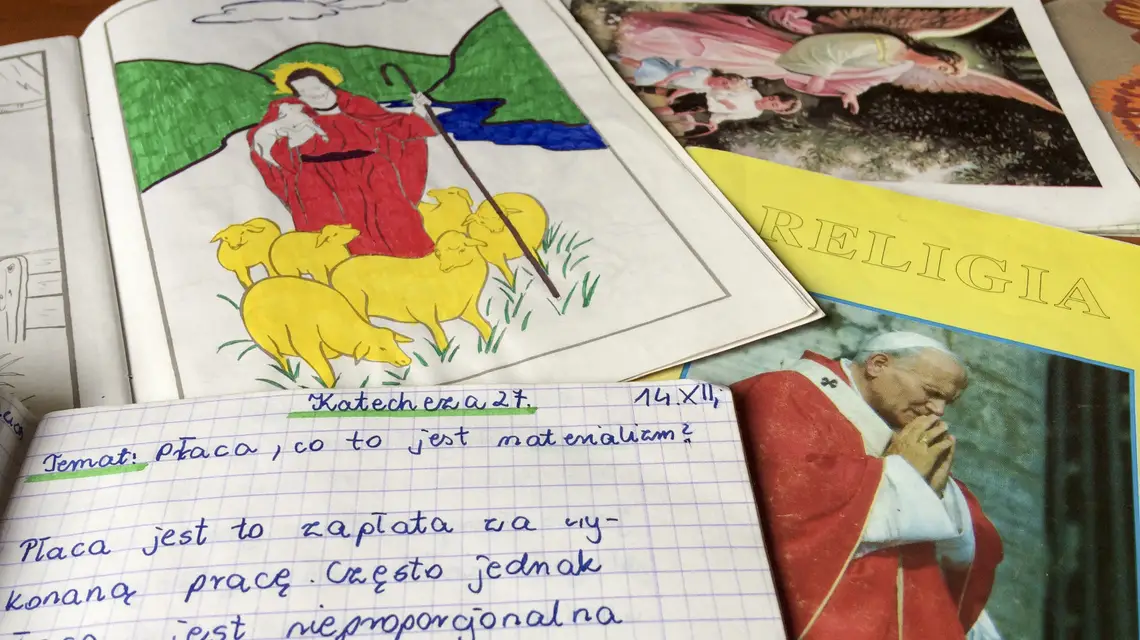 RELIGIA
Katecheza 27.
14.XII,
Temat: Płaca, co to jest materializm?
Płaca jest to zapłata za wy-
konaną pracę. Często jednak
jest nieproporcjonalna